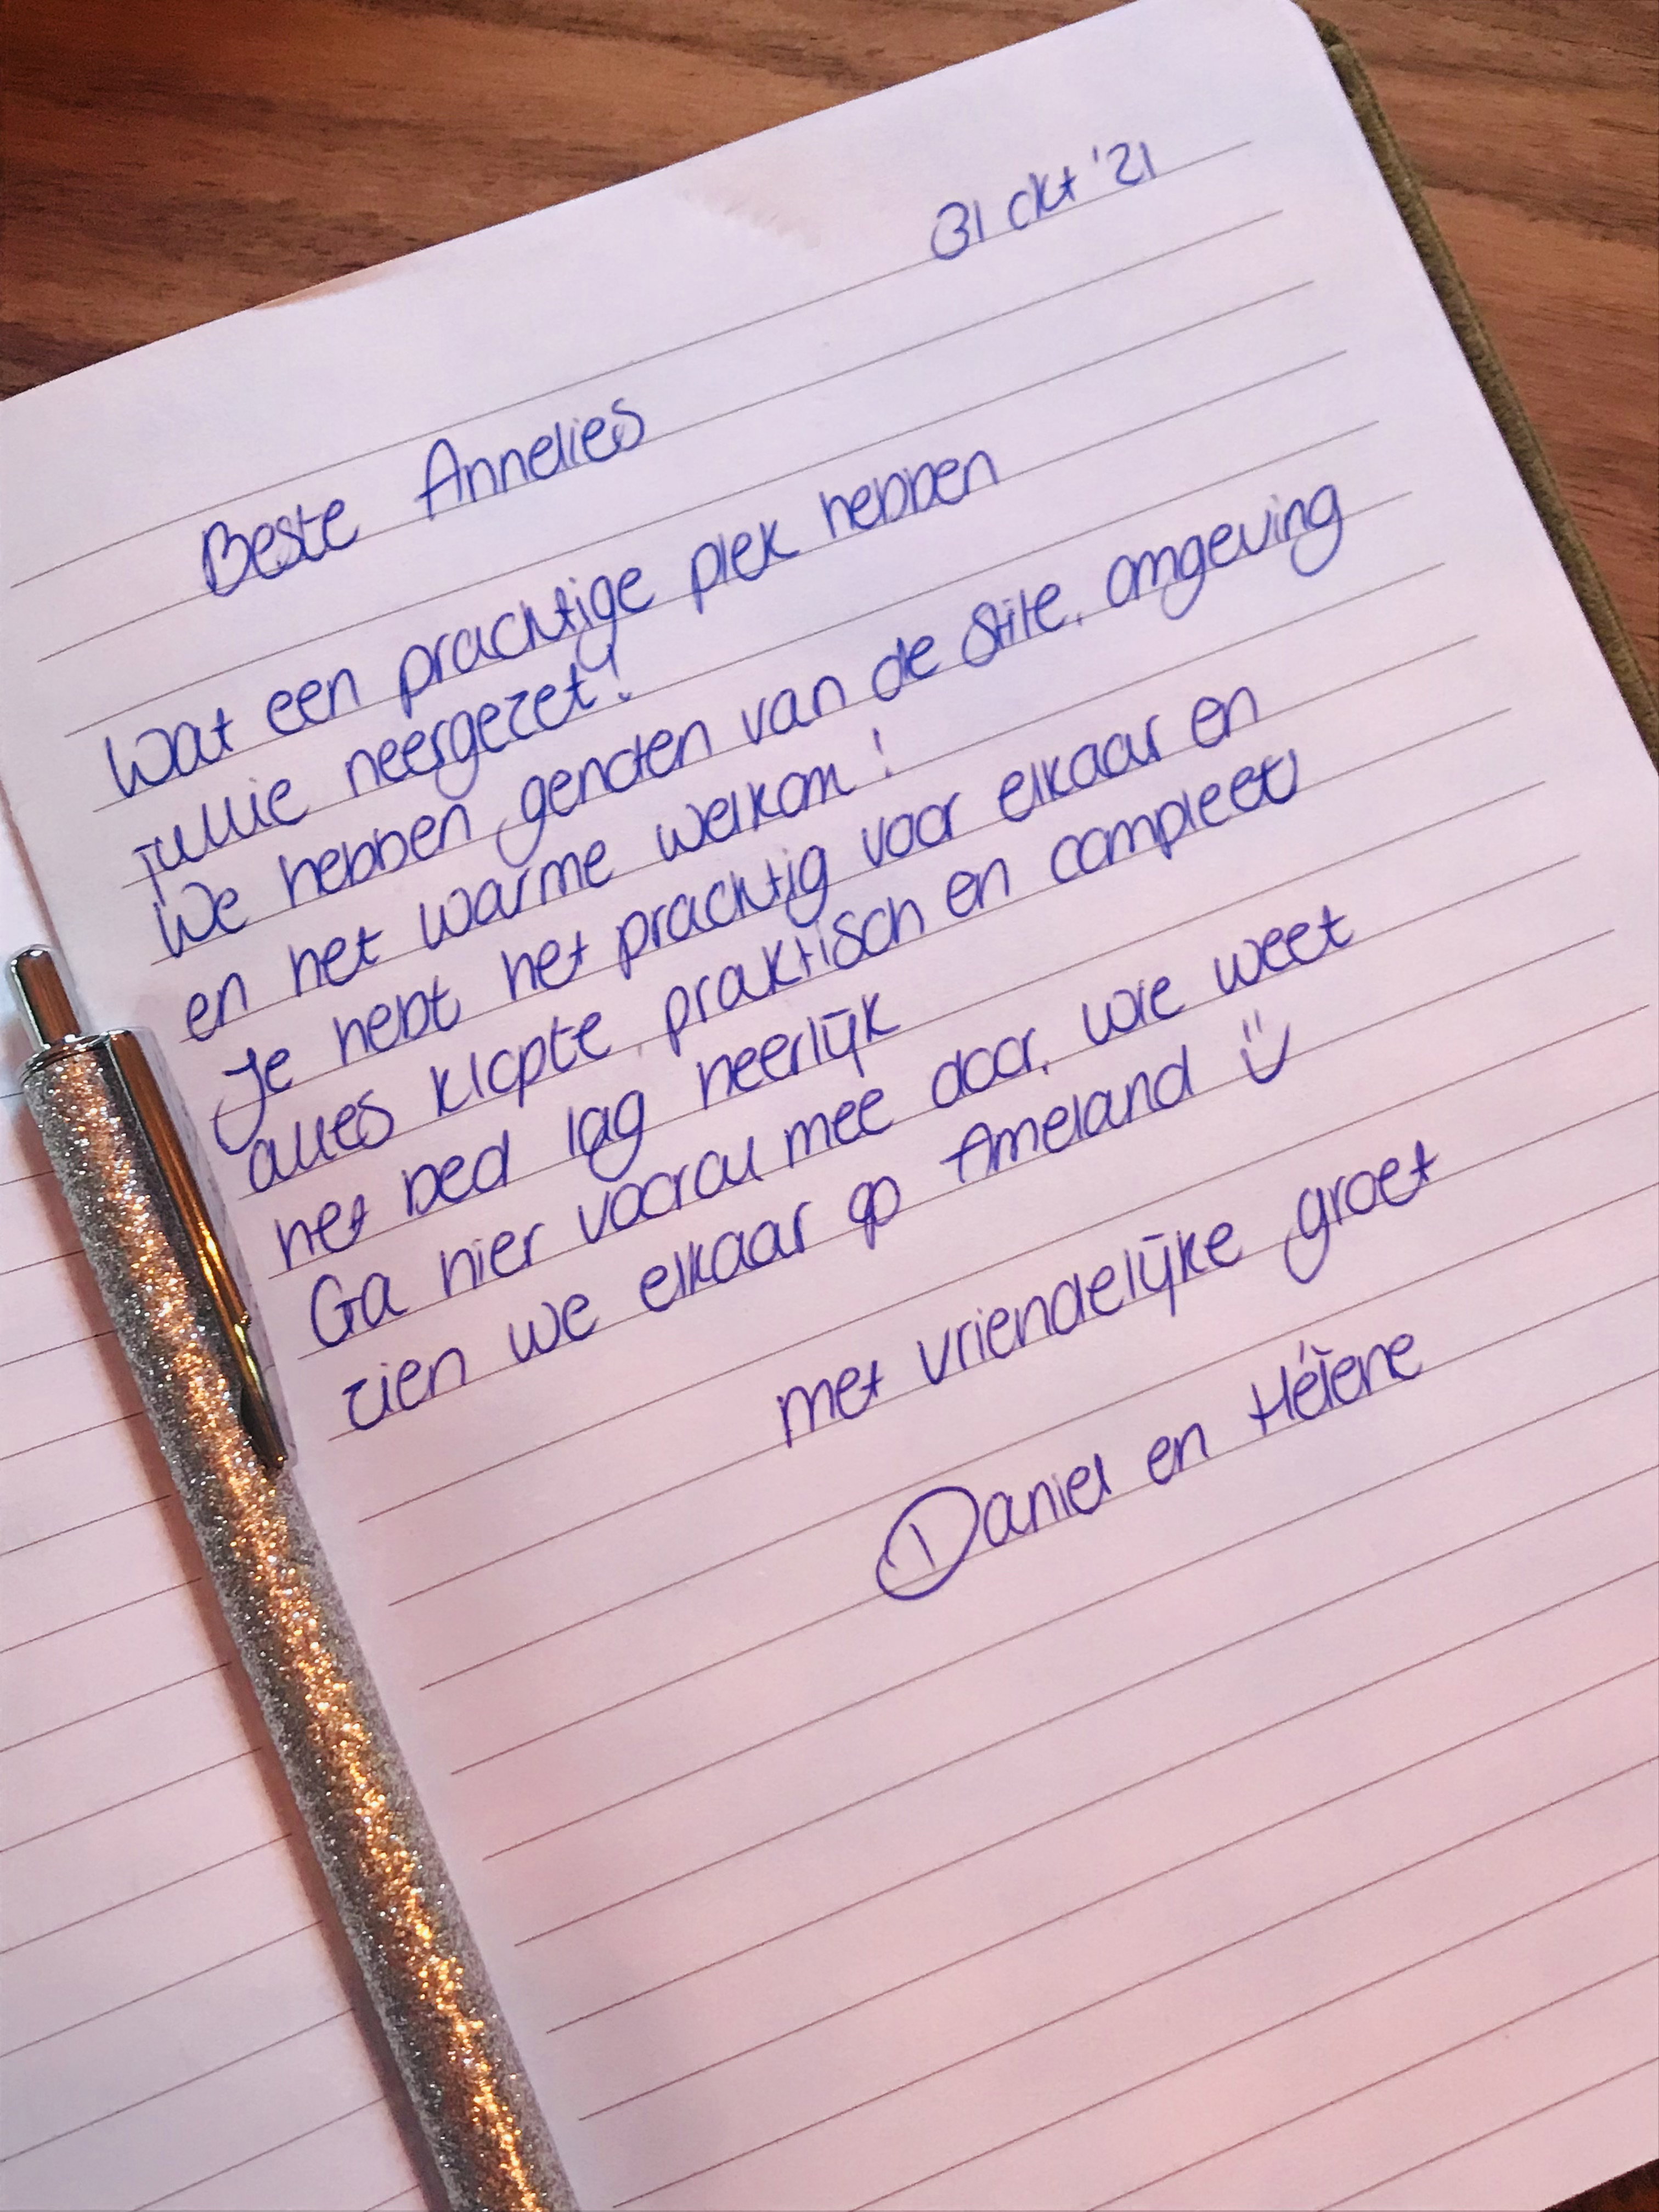 31 okt '21
Beste Annelies
Wat een prachtige plek hebben
jullie neergezet!
We hebben genoten van de stilte, omgeving
en het warme welkom!
Je hebt het prachtig voor elkaar en
alles klopte, praktisch en compleet
het bed lag heerlijk
Ga hier vooral mee door, wie weet
zien we elkaar op Ameland
met vriendelijke groet
Daniel en Hélène